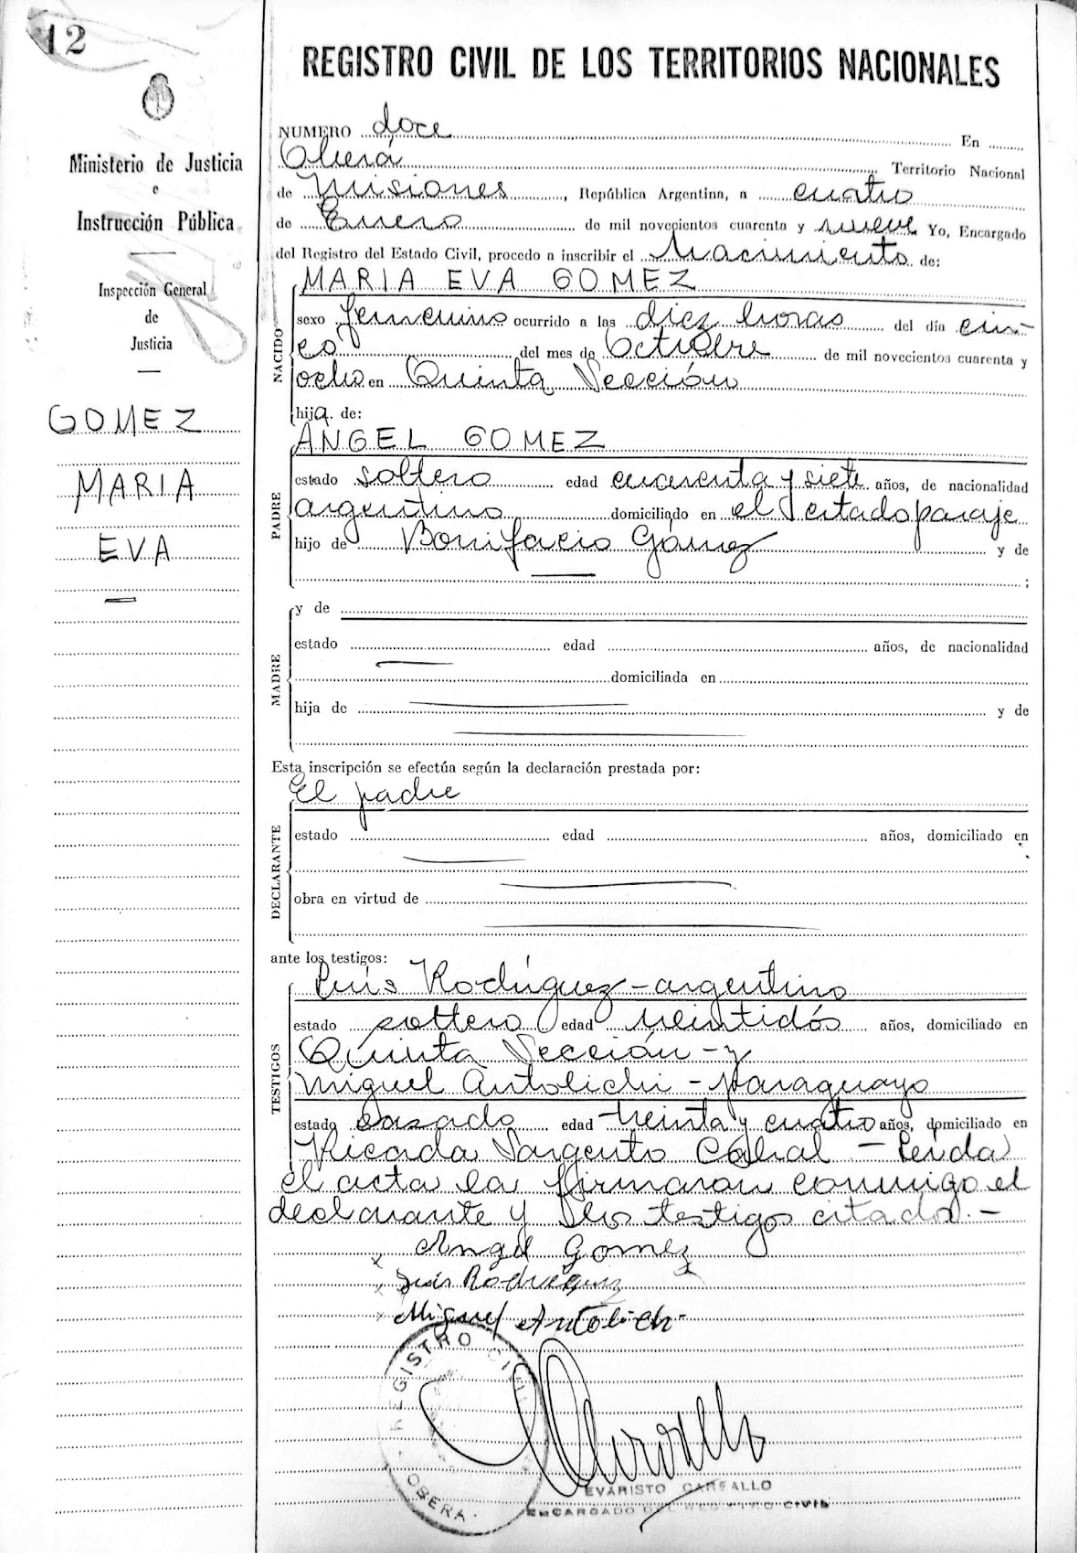 12
Ministerio de Justicia
e
Instrucción Pública
Inspección General
de
Justicia
GOMEZ
MARIA
EVA
REGISTRO CIVIL DE LOS TERRITORIOS NACIONALES
NUMERO doce En
Oberá Territorio Nacional
de Misiones, República Argentina, a cuatro
de Enero de mil novecientos cuarenta y nueve Yo, Encargado
del Registro del Estado Civil, procedo a inscribir el Nacimiento de:
NACIDO
MARIA EVA GOMEZ
sexo femenino ocurrido a las diez horas del día cin-
co del mes de Octubre de mil novecientos cuarenta y
ocho en Quinta Sección
hija de:
PADRE
ANGEL GOMEZ
estado soltero edad cuarenta y siete años, de nacionalidad
argentino domiciliado en el citado paraje
hijo de Bonifacio Gómez y de
;
MADRE
y de
estado edad años, de nacionalidad
domiciliada en
hija de y de
Esta inscripción se efectúa según la declaración prestada por:
DECLARANTE
El padre
estado edad años, domiciliado en
obra en virtud de
ante los testigos:
TESTIGOS
Luis Rodríguez - argentino
estado soltero edad veintidós años, domiciliado en
Quinta Sección - y
Miguel Antolichi - paraguayo
estado casado edad treinta y cuatro años, domiciliado en
Picada Sargento Cabral - Leída
el acta la firmaron conmigo el
declarante y los testigos citados.-
x Angel Gomez
x Luis Rodriguez
x Miguel Antolichi
REGISTRO CIVIL
OBERA
EVARISTO CARFALLO
ENCARGADO DEL REGISTRO CIVIL